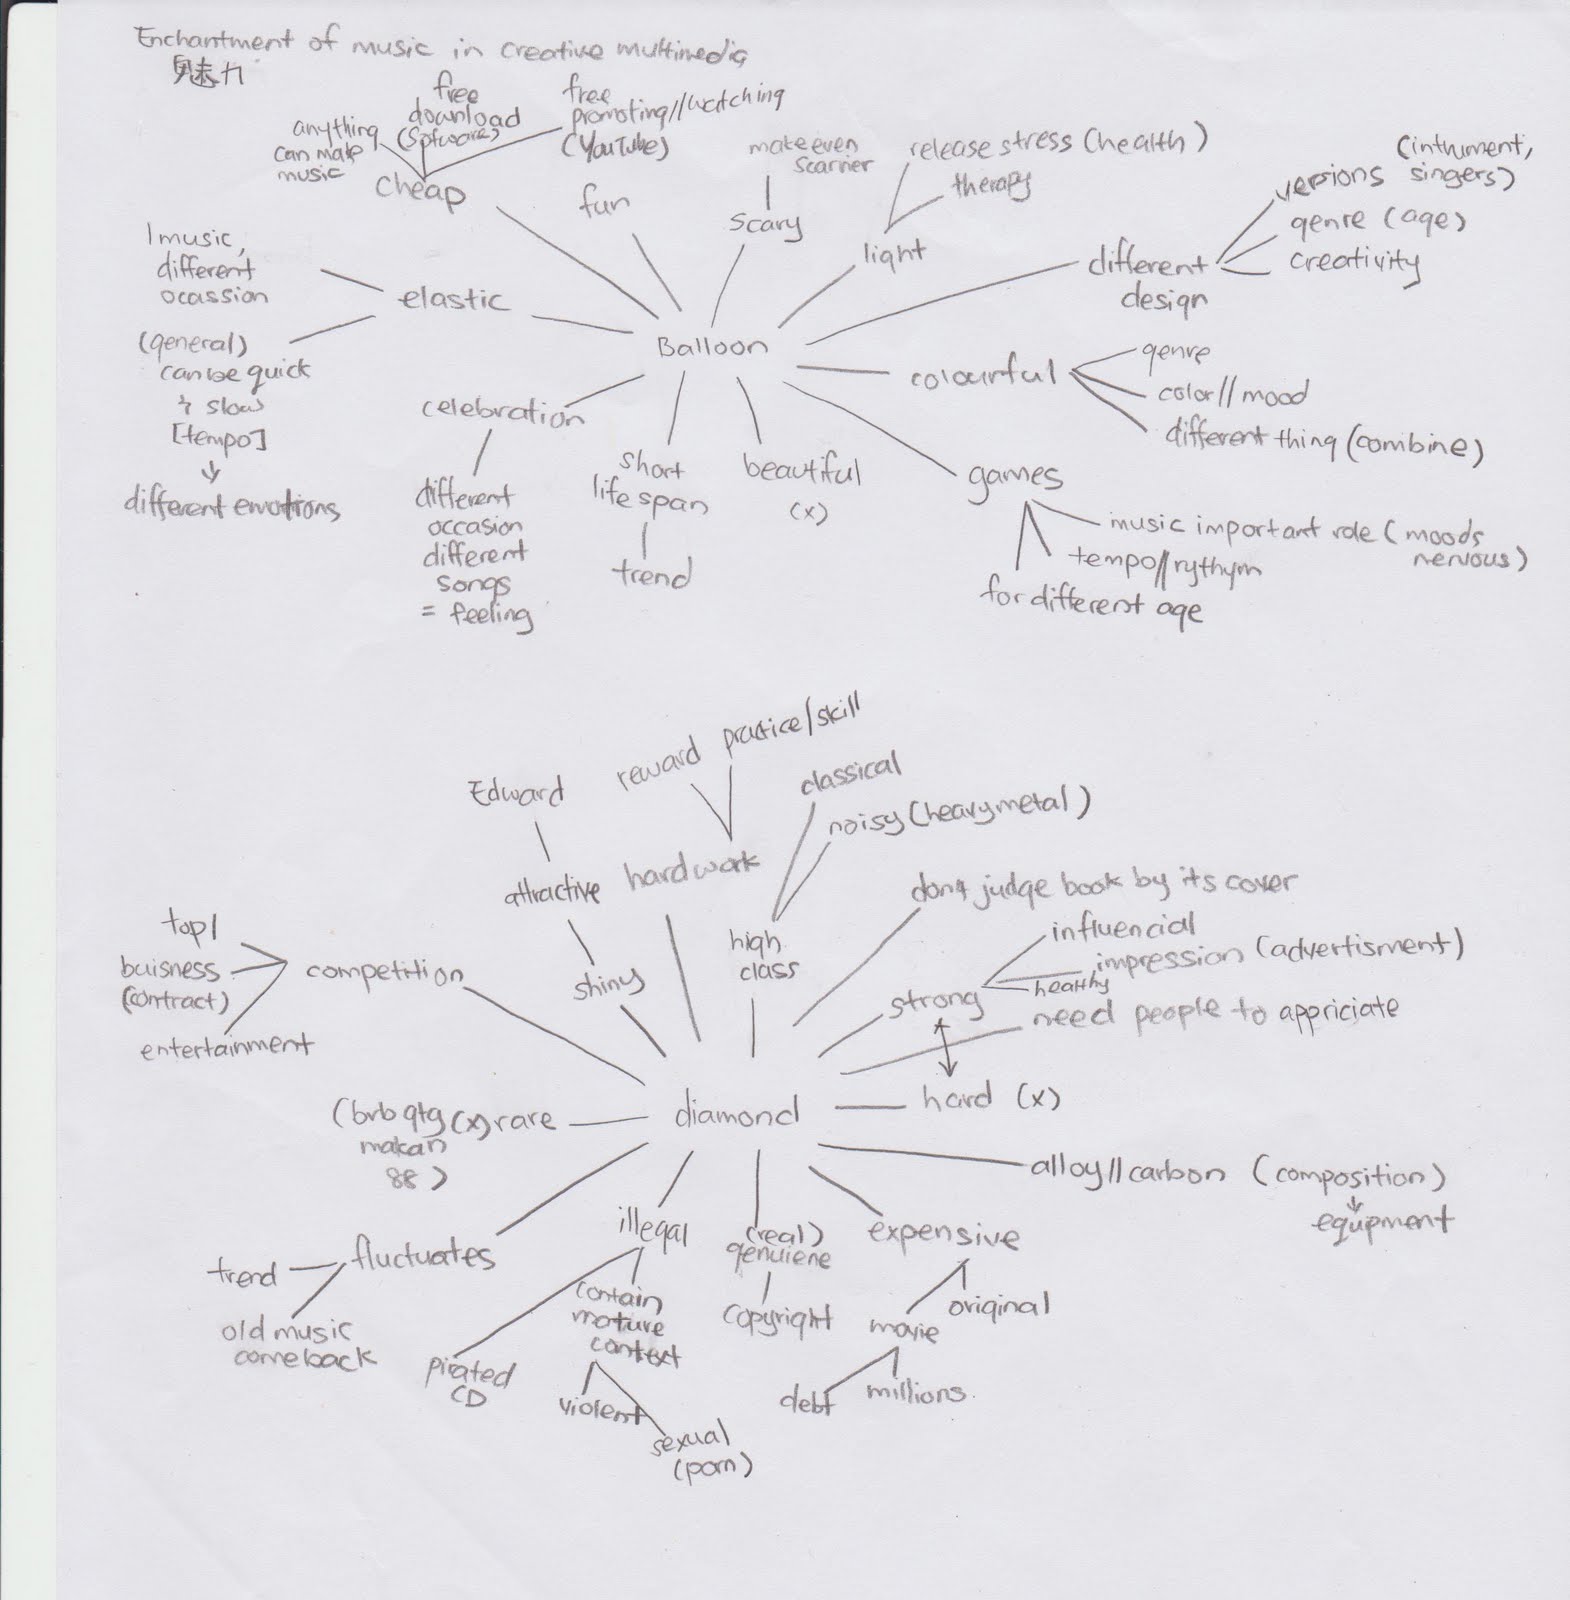 Enchantment of music in creative multimedia
魅力
anything
can make
music
free
download
(Software)
free
promoting//watching
(YouTube)
cheap
fun
make even
scarrier
scary
release stress (health)
therapy
light
(intrument,
versions singers)
genre (age)
creativity
different
design
1 music,
different
ocassion
elastic
(general)
can be quick
& slow
[tempo]
different emotions
Balloon
colourful
genre
color//mood
different thing (combine)
celebration
different
occasion
different
songs
= feeling
short
life span
trend
beautiful
(x)
games
music important role (moods
nervous)
tempo//rythym
for different age
Edward
attractive
shiny
reward
practice/skill
hardwork
classical
noisy (heavymetal)
high
class
dont judge book by its cover
influencial
impression (advertisment)
healthy
strong
need people to appriciate
top 1
buisness
(contract)
entertainment
competition
diamond
hard (x)
(brb gtg (x) rare
makan
88)
alloy//carbon (composition)
equipment
fluctuates
trend
old music
comeback
illegal
pirated
CD
contain
mature
context
violent
sexual
(porn)
(real)
genuiene
copyright
expensive
original
movie
debt
millions